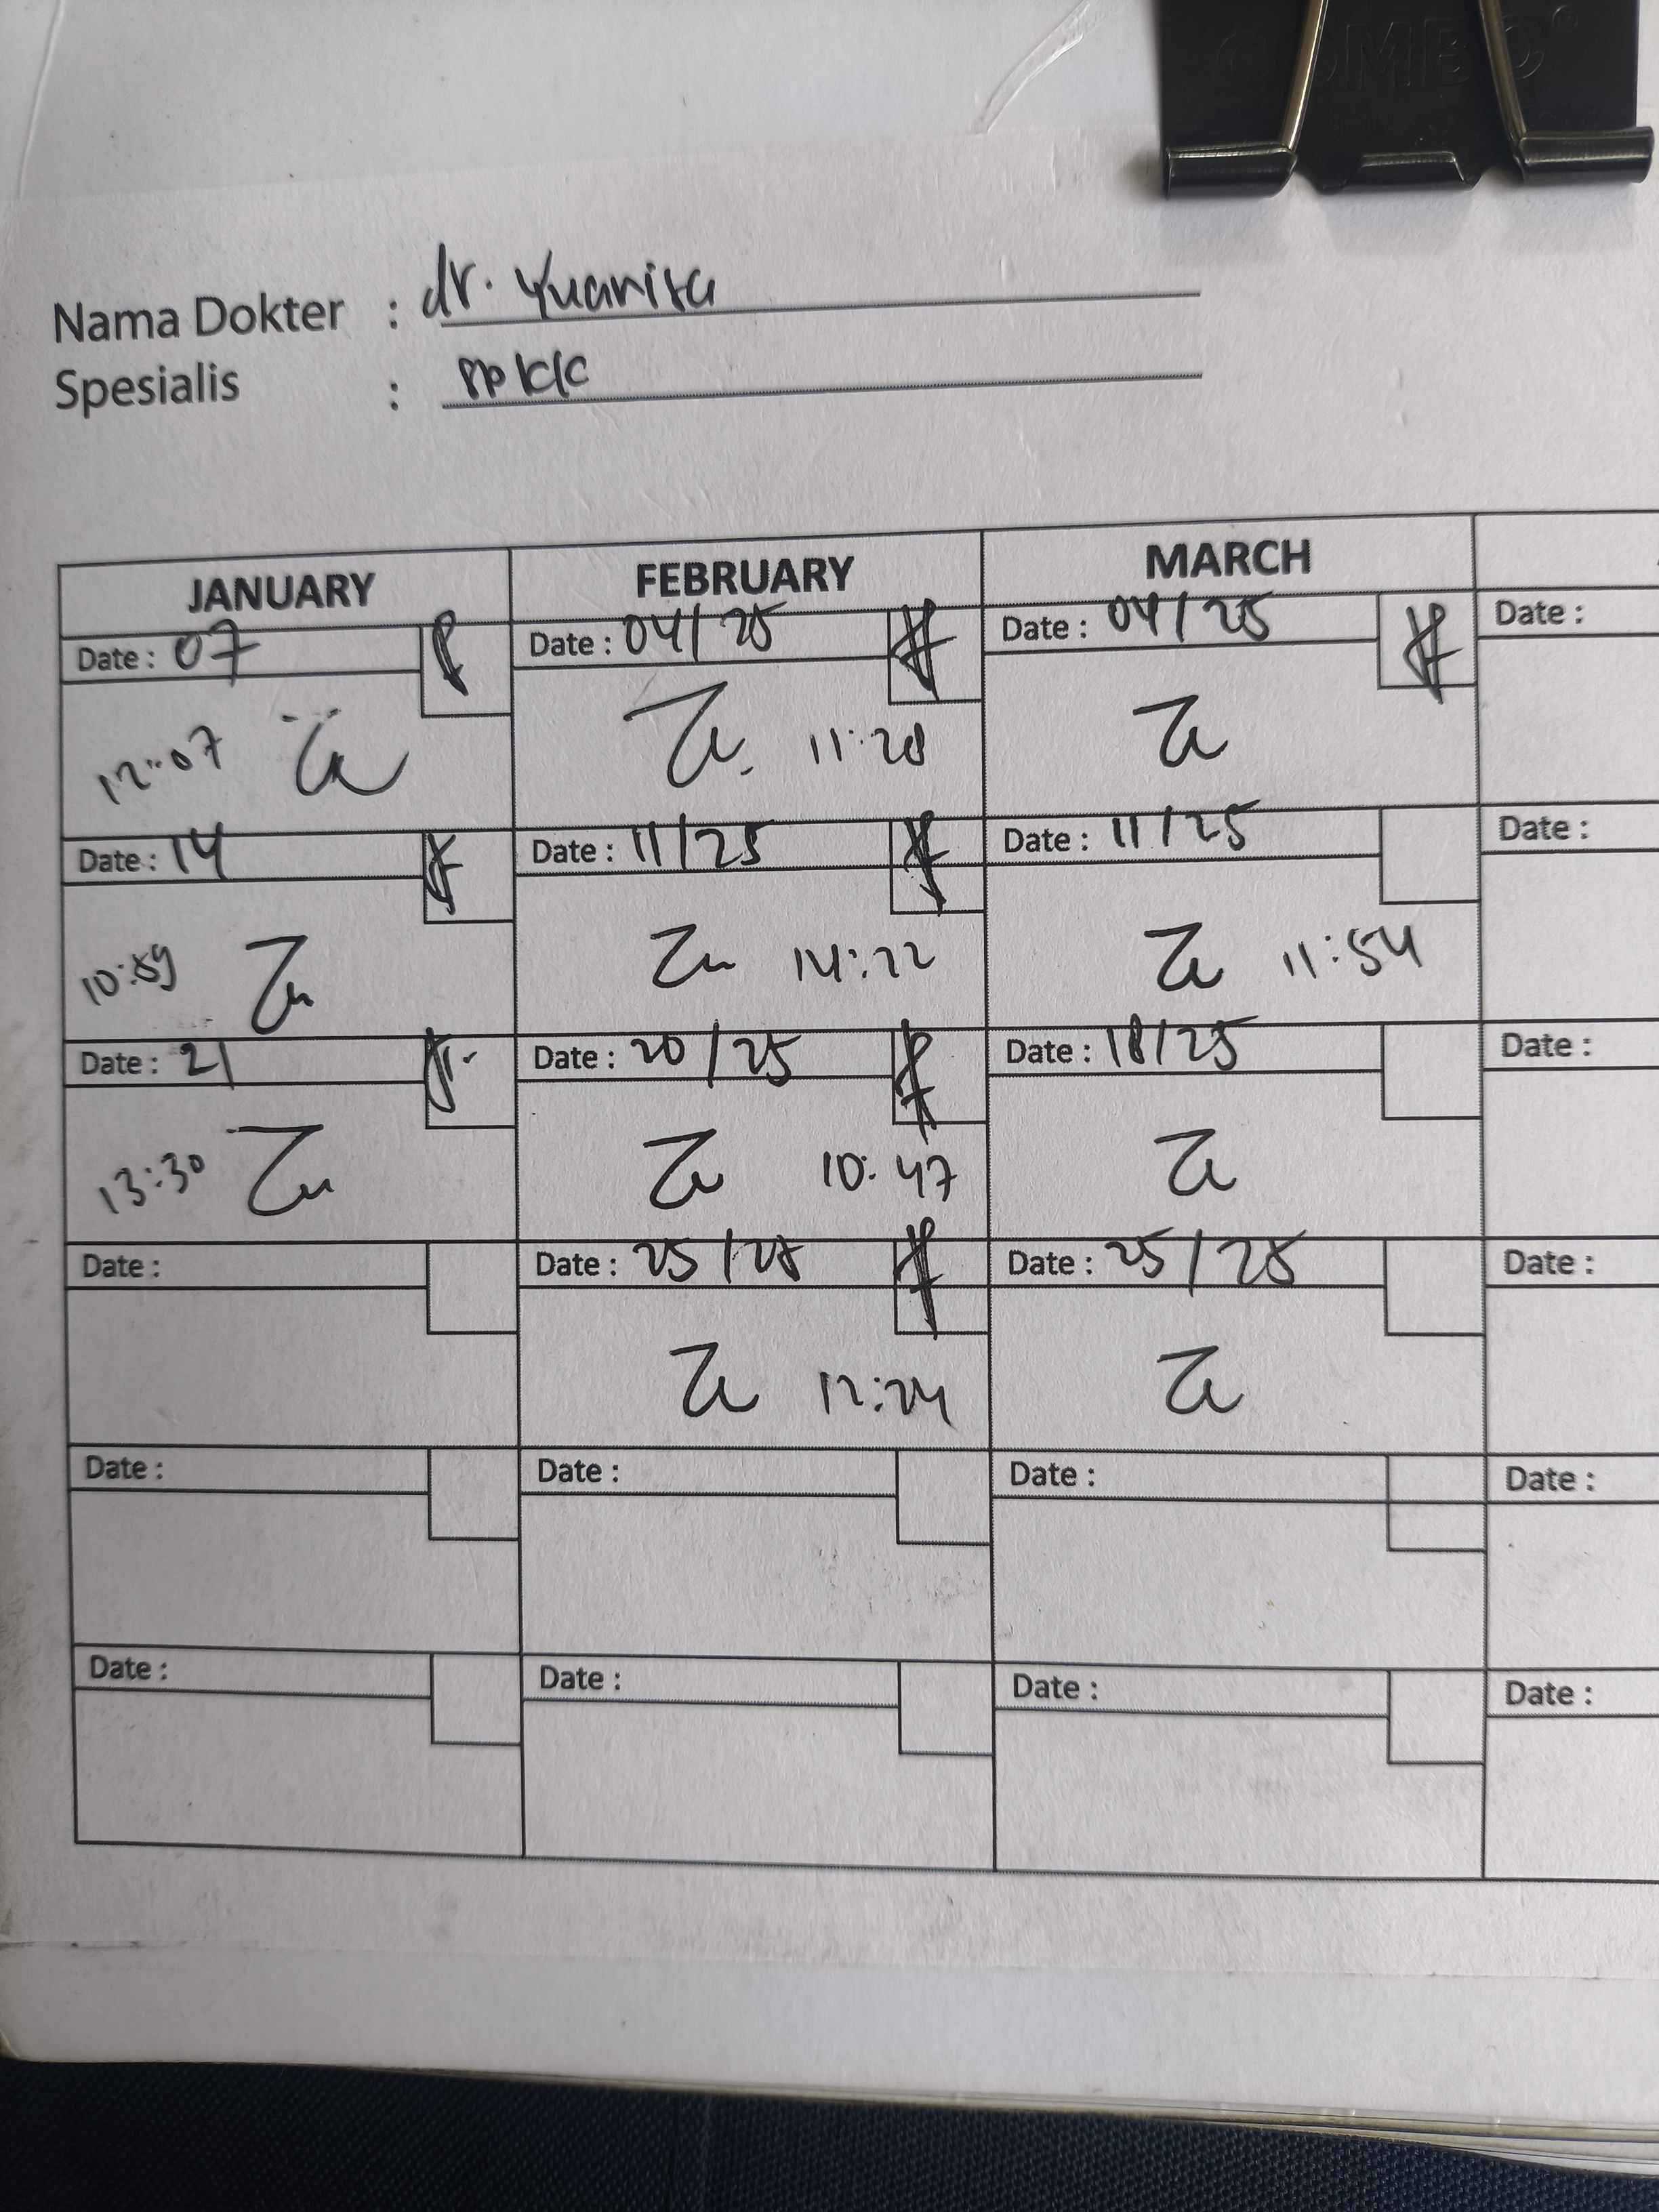 Nama Dokter : dr. Yuanisa
Spesialis :
JANUARY FEBRUARY MARCH
Date : 07 Date : 04/25 Date : 04/25 Date :
12:07 11:28
Date : 14 Date : 11/25 Date : 11/25 Date :
10:59 14:22 11:54
Date : 21 Date : 20/25 Date : 18/25 Date :
13:30 10:47
Date : Date : 25/25 Date : 25/25 Date :
12:24
Date : Date : Date : Date :
Date : Date : Date : Date :